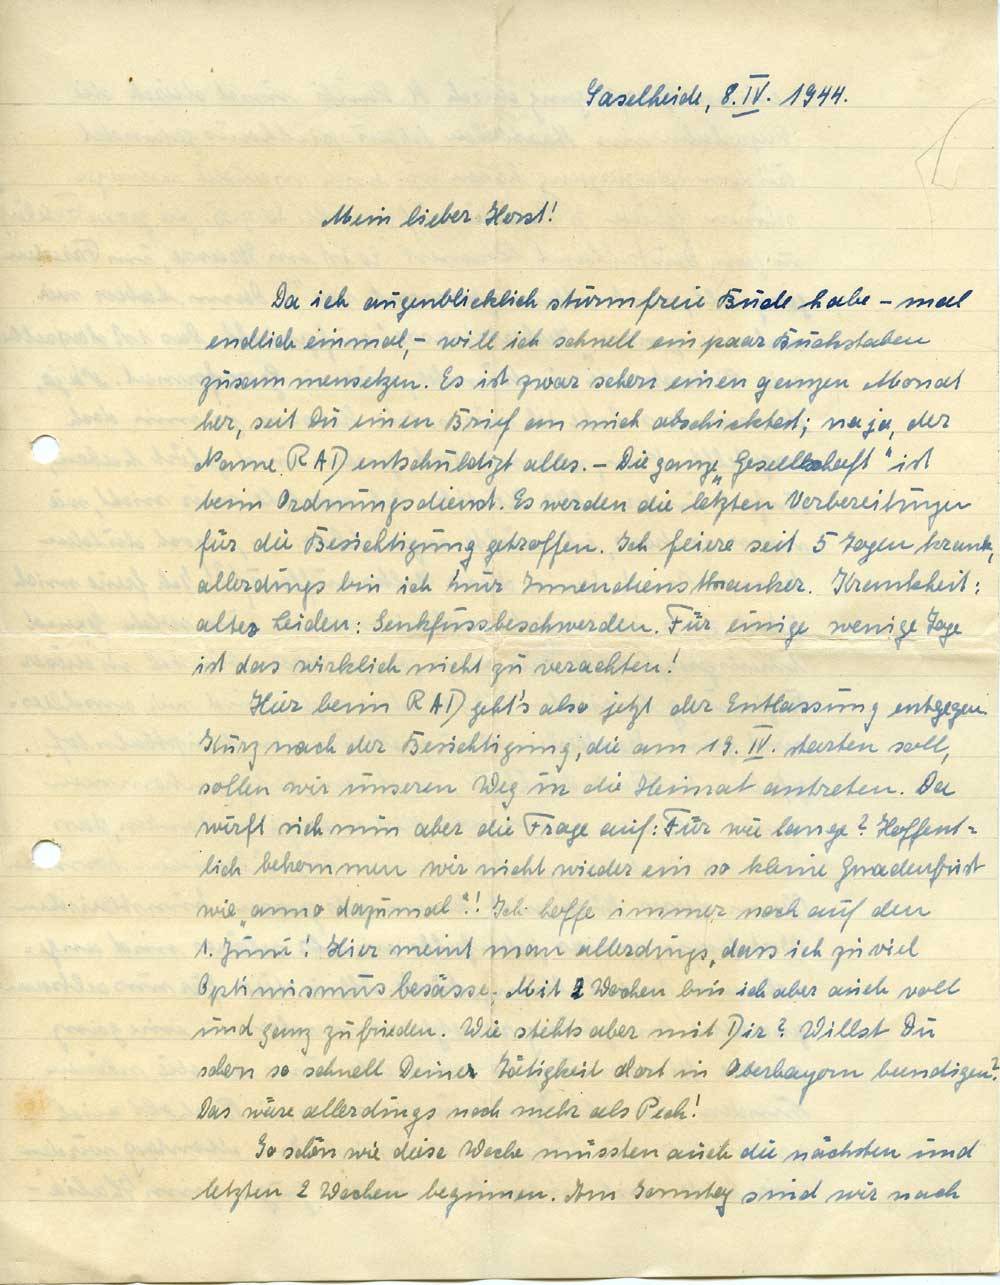 Gaselheide, 8. IV. 1944.
Mein lieber Horst!
Da ich augenblicklich sturmfreie Bude habe – mal
endlich einmal, – will ich schnell ein paar Buchstaben
zusammensetzen. Es ist zwar schon einen ganzen Monat
her, seit Du einen Brief an mich abschicktest; na ja, der
Name RAD entschuldigt alles. – Die ganze „Gesellschaft" ist
beim Ordnungsdienst. Es werden die letzten Vorbereitungen
für die Besichtigung getroffen. Ich feiere seit 5 Tagen krank,
allerdings bin ich nur Innendienstkranker. Krankheit:
altes Leiden: Senkfussbeschwerden. Für einige wenige Tage
ist das wirklich nicht zu verachten!
Hier beim RAD geht's also jetzt der Entlassung entgegen.
Kurz nach der Besichtigung, die am 19. IV. starten soll,
sollen wir unseren Weg in die Heimat antreten. Da
wirft sich nun aber die Frage auf: Für wie lange? Hoffent=
lich bekommen wir nicht wieder ein so kleine Gnadenfrist
wie „anno dazumal"! Ich hoffe immer noch auf den
1. Juni! Hier meint man allerdings, dass ich zu viel
Optimismus besässe. Mit 2 Wochen bin ich aber auch voll
und ganz zufrieden. Wie stehts aber mit Dir? Willst Du
schon so schnell Deine Tätigkeit dort in Oberbayern beendigen?
Das wäre allerdings noch mehr als Pech!
So schön wie diese Woche müssten auch die nächsten und
letzten 2 Wochen beginnen. Am Sonntag sind wir nach